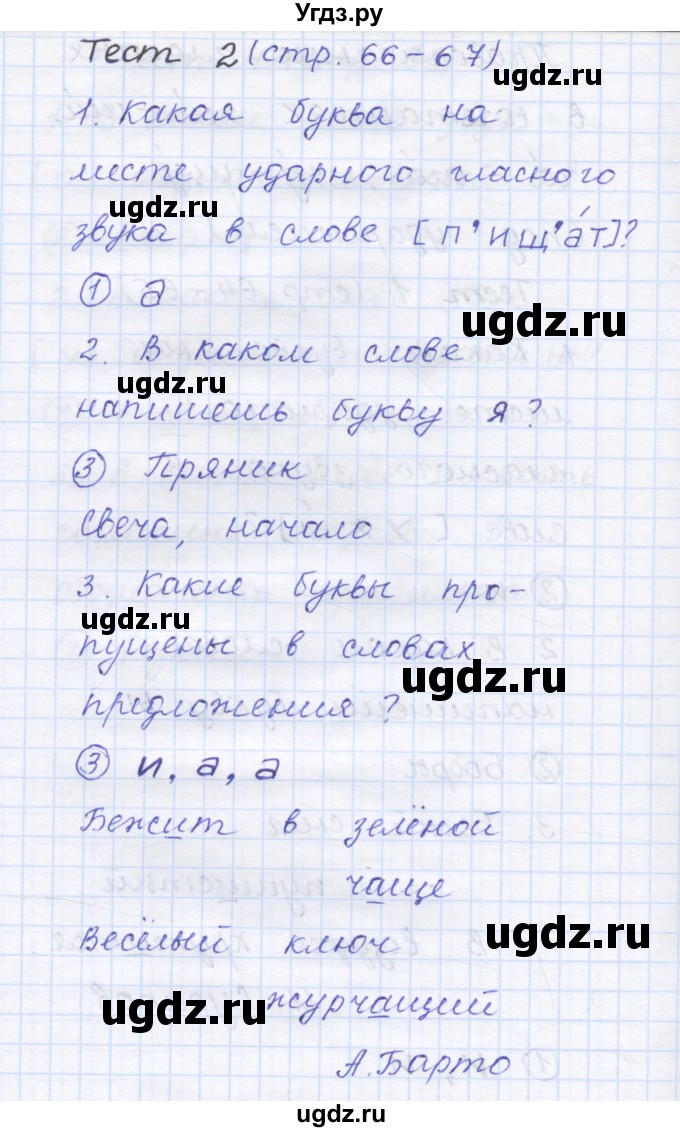 Угдз.ру
Тест 2 (стр. 66-67)
ugdz.ru
1. Какая буква на
месте ударного гласного
ugdz.ru
звука в слове [п'ищ'áт]?
① а
ugdz.ru
2. В каком слове
ugdz.ru
напишешь букву я?
③ Пряник
Свеча, начало
3. Какие буквы про-
ugdz.ru
пущены в словах
ugdz.ru
предложения?
③ и, а, а
Бежит в зелёной
чаще
ugdz.ru
Весёлый ключ
журчащий
ugdz.ru
А.Барто
ugdz.ru